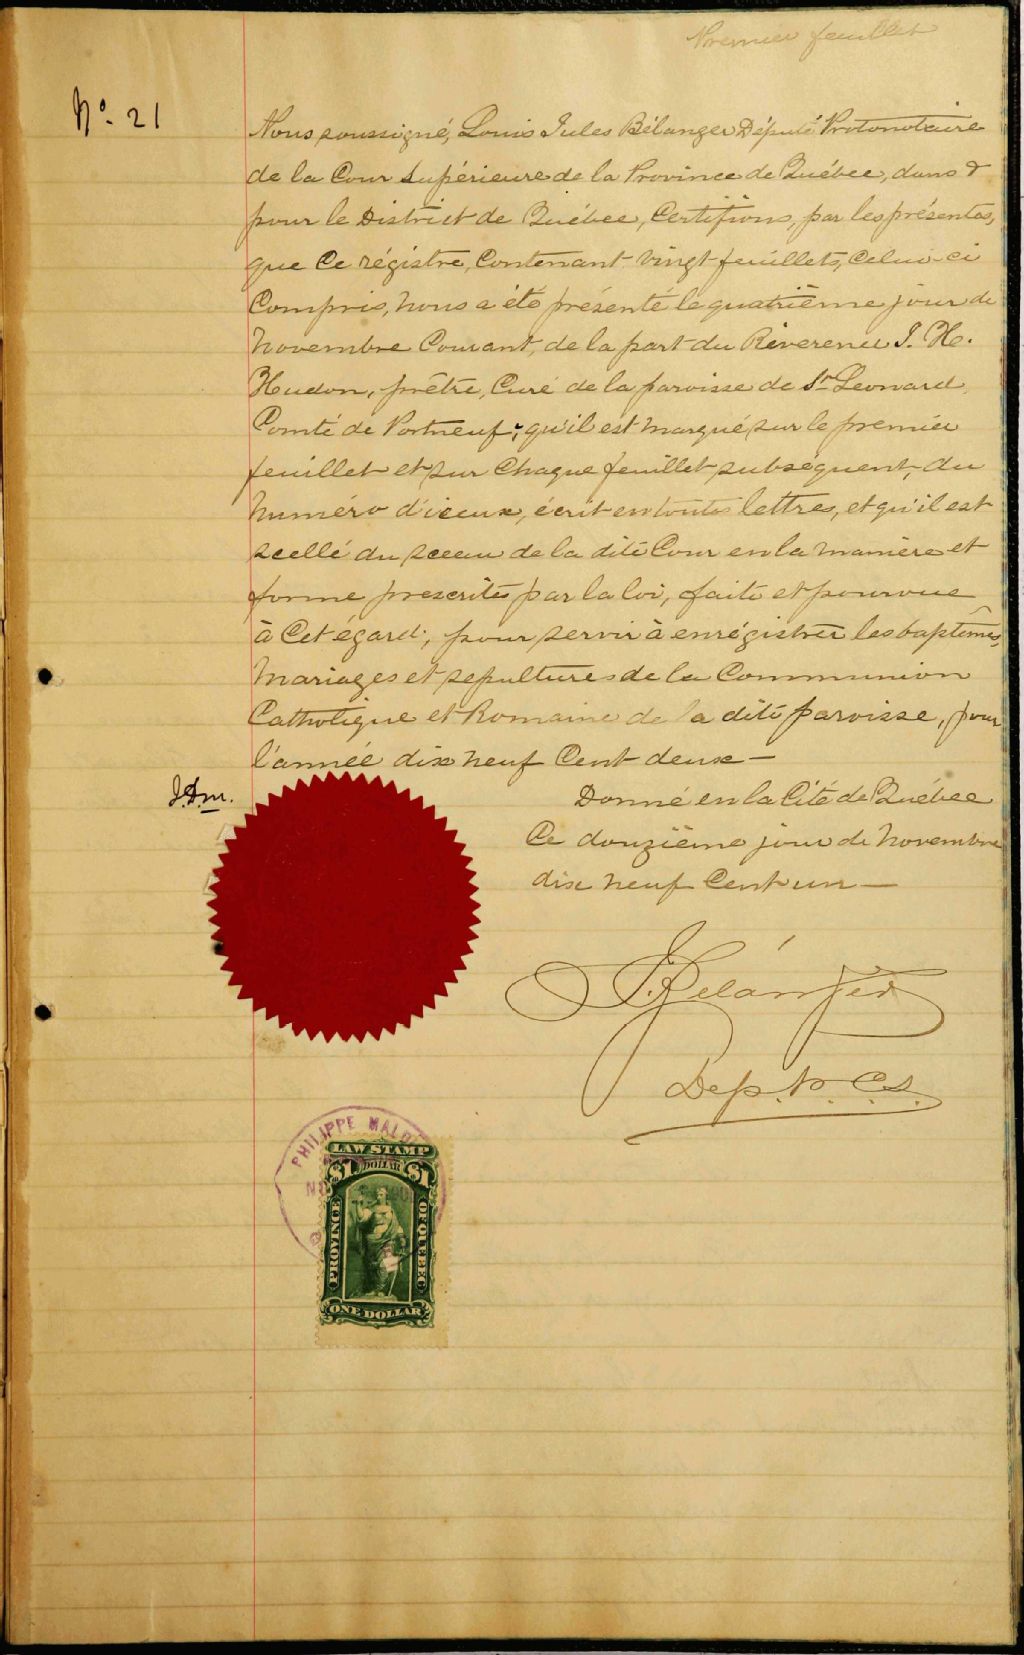 Premier feuillet
No. 21
Nous soussigné, Louis Jules Bélanger Député Protonotaire
de la Cour Supérieure de la Province de Québec, dans &
pour le District de Québec, Certifions, par les présentes,
que Ce régistre, Contenant vingt feuillets, Celui-ci
Compris, nous a été présenté le quatrième jour de
Novembre Courant, de la part du Réverend J. H.
Hudon, prêtre, Curé de la paroisse de St Leonard,
Comté de Portneuf; qu'il est marqué sur le premier
feuillet et sur Chaque feuillet subséquent, du
numéro d'iceux, écrit en toutes lettres, et qu'il est
scellé du sceau de la dite Cour en la manière et
forme prescrites par la loi, faite et pourvue
à Cet égard, pour servir à enrégistrer les baptêmes,
Mariages et sepultures de la Communion
Catholique et Romaine de la dite paroisse, pour
l'année dix neuf Cent deux —
J.D.M.
Donné en la Cité de Québec
Ce douzième jour de Novembre
dix neuf Cent un —
J. Bélanger
Dep. P. C. S.
PHILIPPE MALO
LAW STAMP
$1 DOLLAR $1
PROVINCE OF QUEBEC
ONE DOLLAR